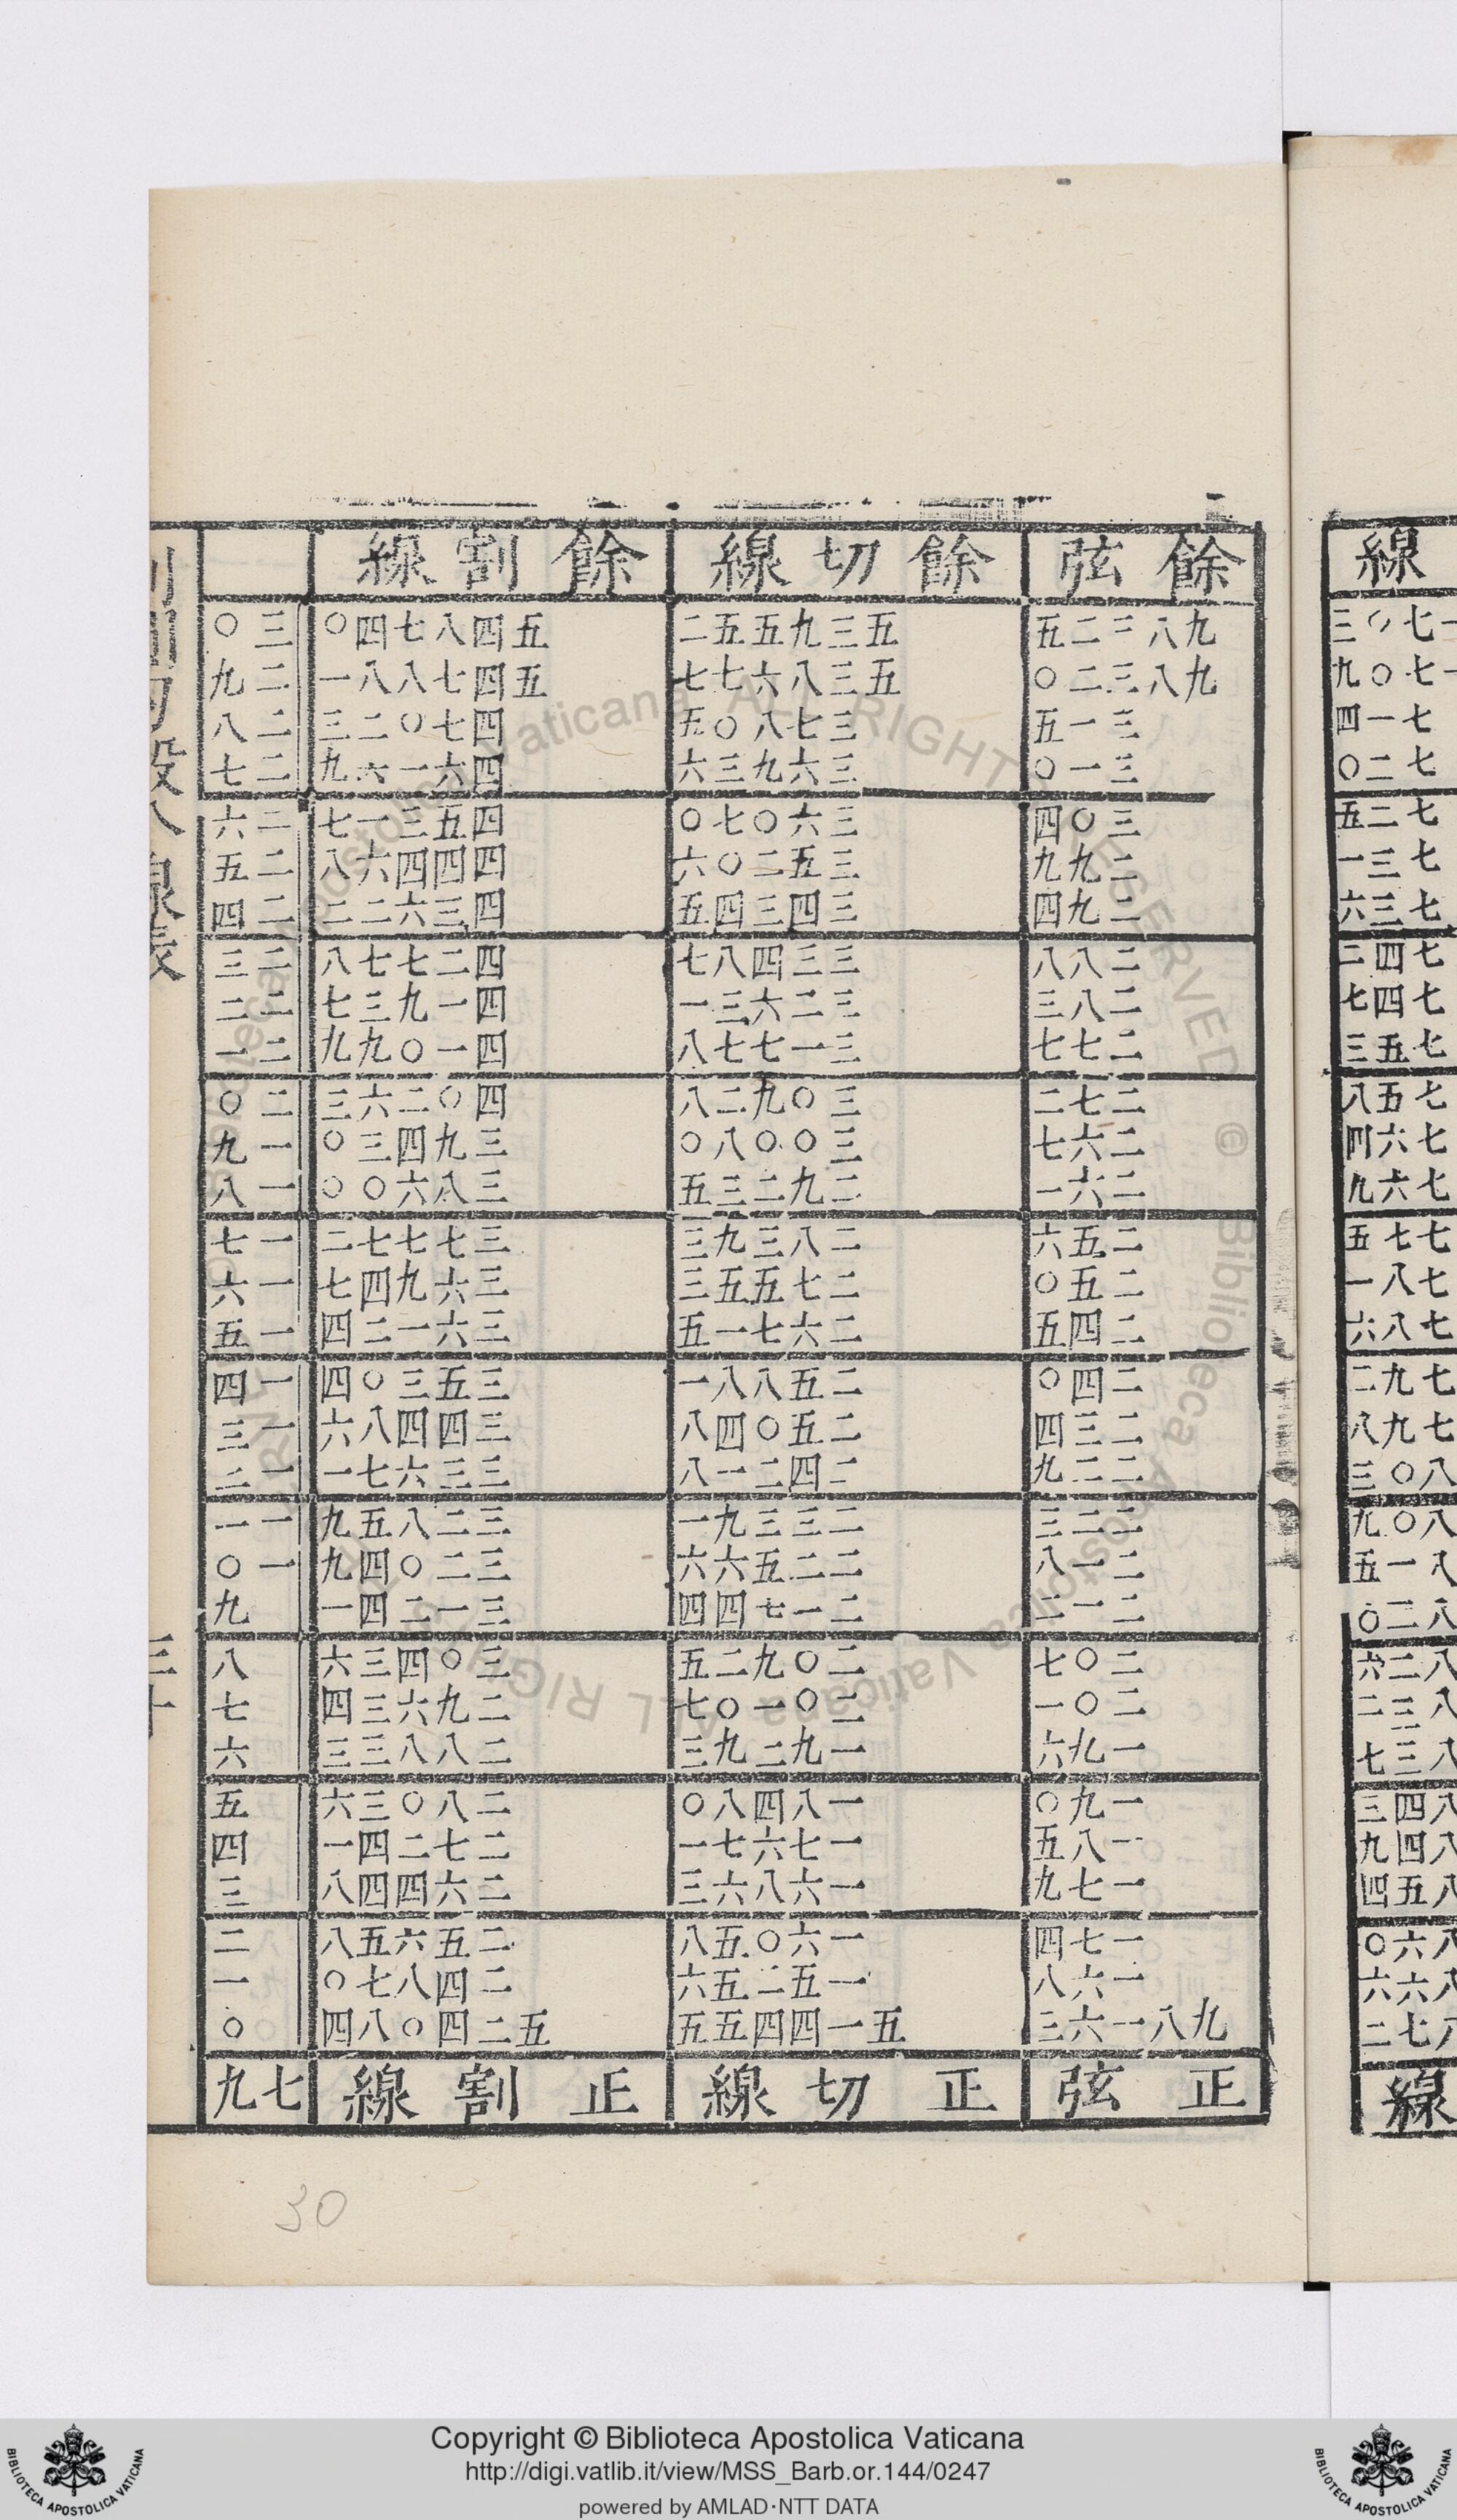 線
一七〇三
一七〇九
七一四
七二〇
七二五
七三一
七三六
七四二
七四七
七五三
七五八
七六四
七六九
七七五
七八一
七八六
七九二
七九八
八〇三
八〇九
八一五
八二〇
八二六
八三二
八三七
八四三
八四九
八五四
八六〇
八六六
八七二
線
餘弦 餘切線 餘割線
九八三二五 五三九五五二 五四八七四〇 三〇
九八三二〇 五三八六七七 五四七八八一 二九
三一五 三七八〇五 四七〇二三 二八
三一〇 三六九三六 四六一六九 二七
三〇四 三六〇七〇 四五三一七 二六
二九九 三五二〇六 四四四六八 二五
二九四 三四三四五 四三六二二 二四
二八八 三三四八七 四二七七八 二三
二八三 三二六三一 四一九三七 二二
二七七 三一七七八 四一〇九九 二一
二七二 三〇九二八 四〇二六三 二〇
二六七 三〇〇八〇 三九四三〇 一九
二六一 二九二三五 三八六〇〇 一八
二五六 二八三九三 三七七七二 一七
二五〇 二七五五三 三六九四七 一六
二四五 二六七一五 三六一二四 一五
二四〇 二五八八一 三五三〇四 一四
二三四 二五〇四八 三四四八六 一三
二二九 二四二一八 三三六七一 一二
二二三 二三三九一 三二八五九 一一
二一八 二二五六六 三二〇四九 一〇
二一二 二一七四四 三一二四一 九
二〇七 二〇九二五 三〇四三六 八
二〇一 二〇一〇七 二九六三四 七
一九六 一九二九三 二八八三三 六
一九〇 一八四八〇 二八〇三六 五
一八五 一七六七一 二七二四一 四
一七九 一六八六三 二六四四八 三
一七四 一六〇五八 二五六五八 二
一六八 一五二五六 二四八七〇 一
九八一六三 五一四四五五 五二四〇八四 〇
正弦 正切線 正割線 七九
30
Copyright © Biblioteca Apostolica Vaticana
http://digi.vatlib.it/view/MSS_Barb.or.144/0247
powered by AMLAD·NTT DATA
BIBLIOTECA APOSTOLICA VATICANA
BIBLIOTECA APOSTOLICA VATICANA